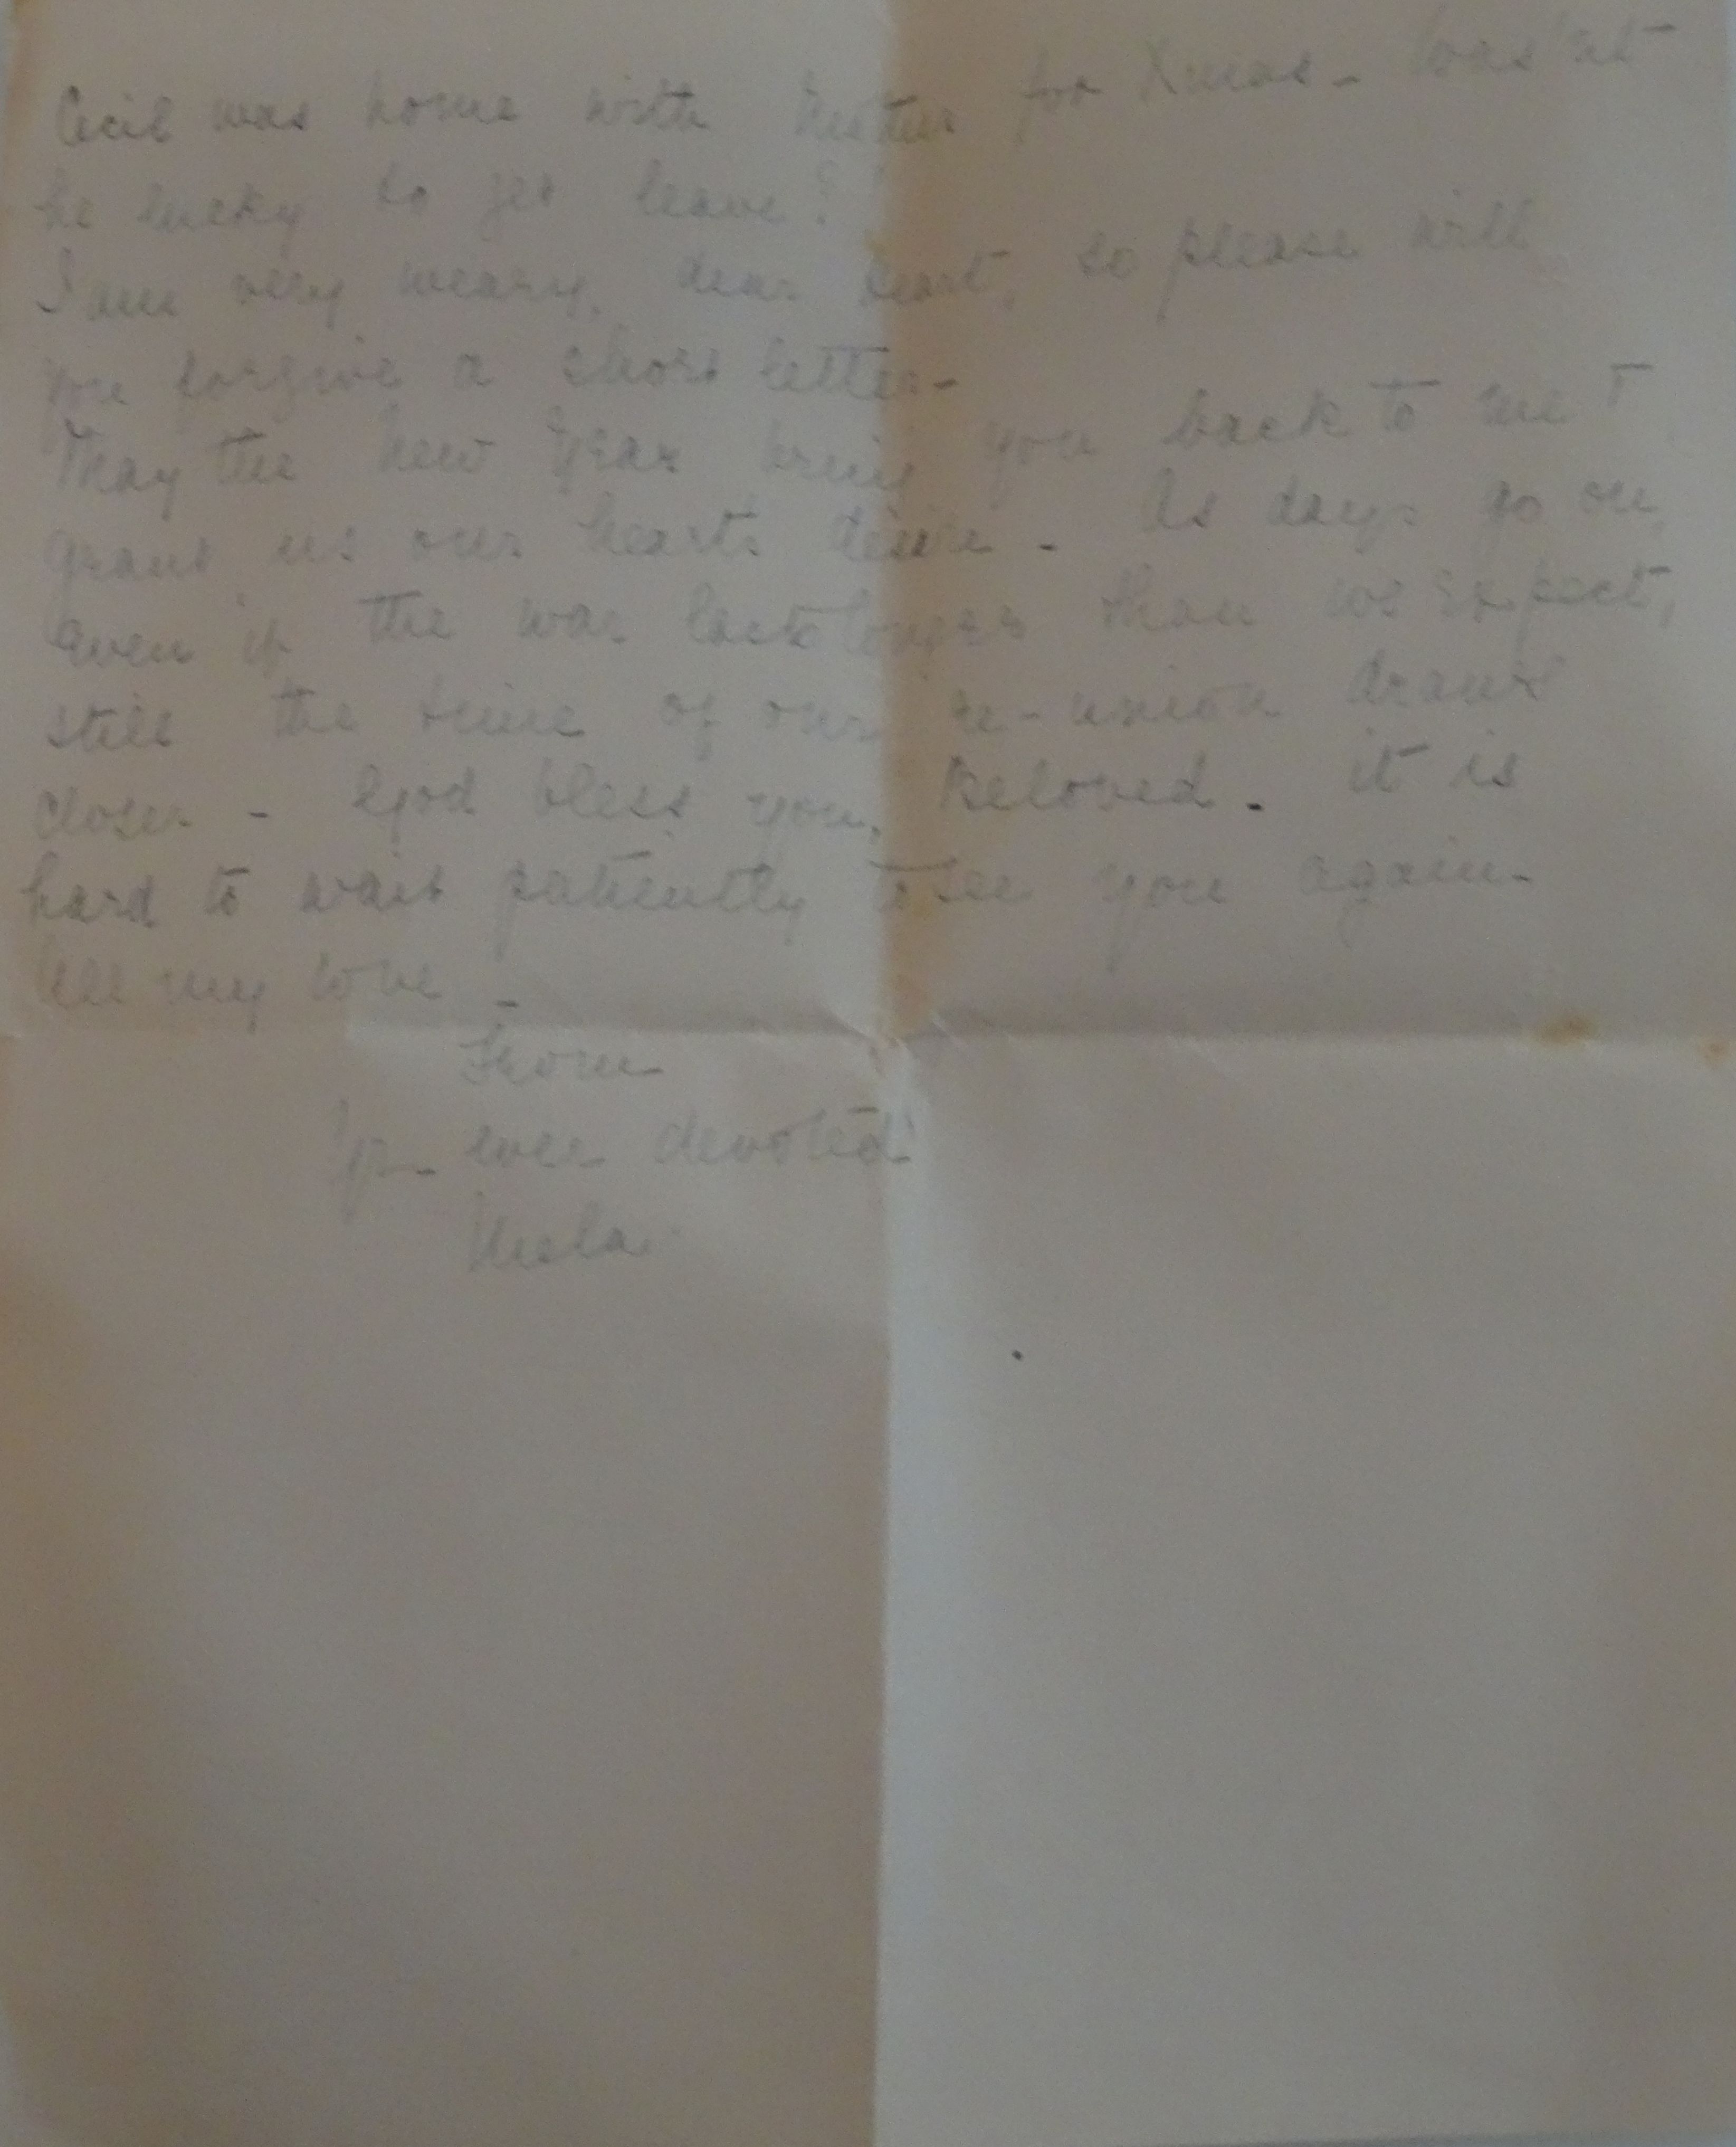 Cecil was home with Hester for Xmas - Was'nt
he lucky to get leave?
I am very weary, dear heart, so please will
you forgive a short letter -
May the New Year bring you back to me &
grant us our hearts desire - As days go on,
even if the war lasts longer than we expect,
still the time of our re-union draws
closer - God bless you, Beloved. it is
hard to wait patiently to see you again -
All my love -
From
Yr ever devoted